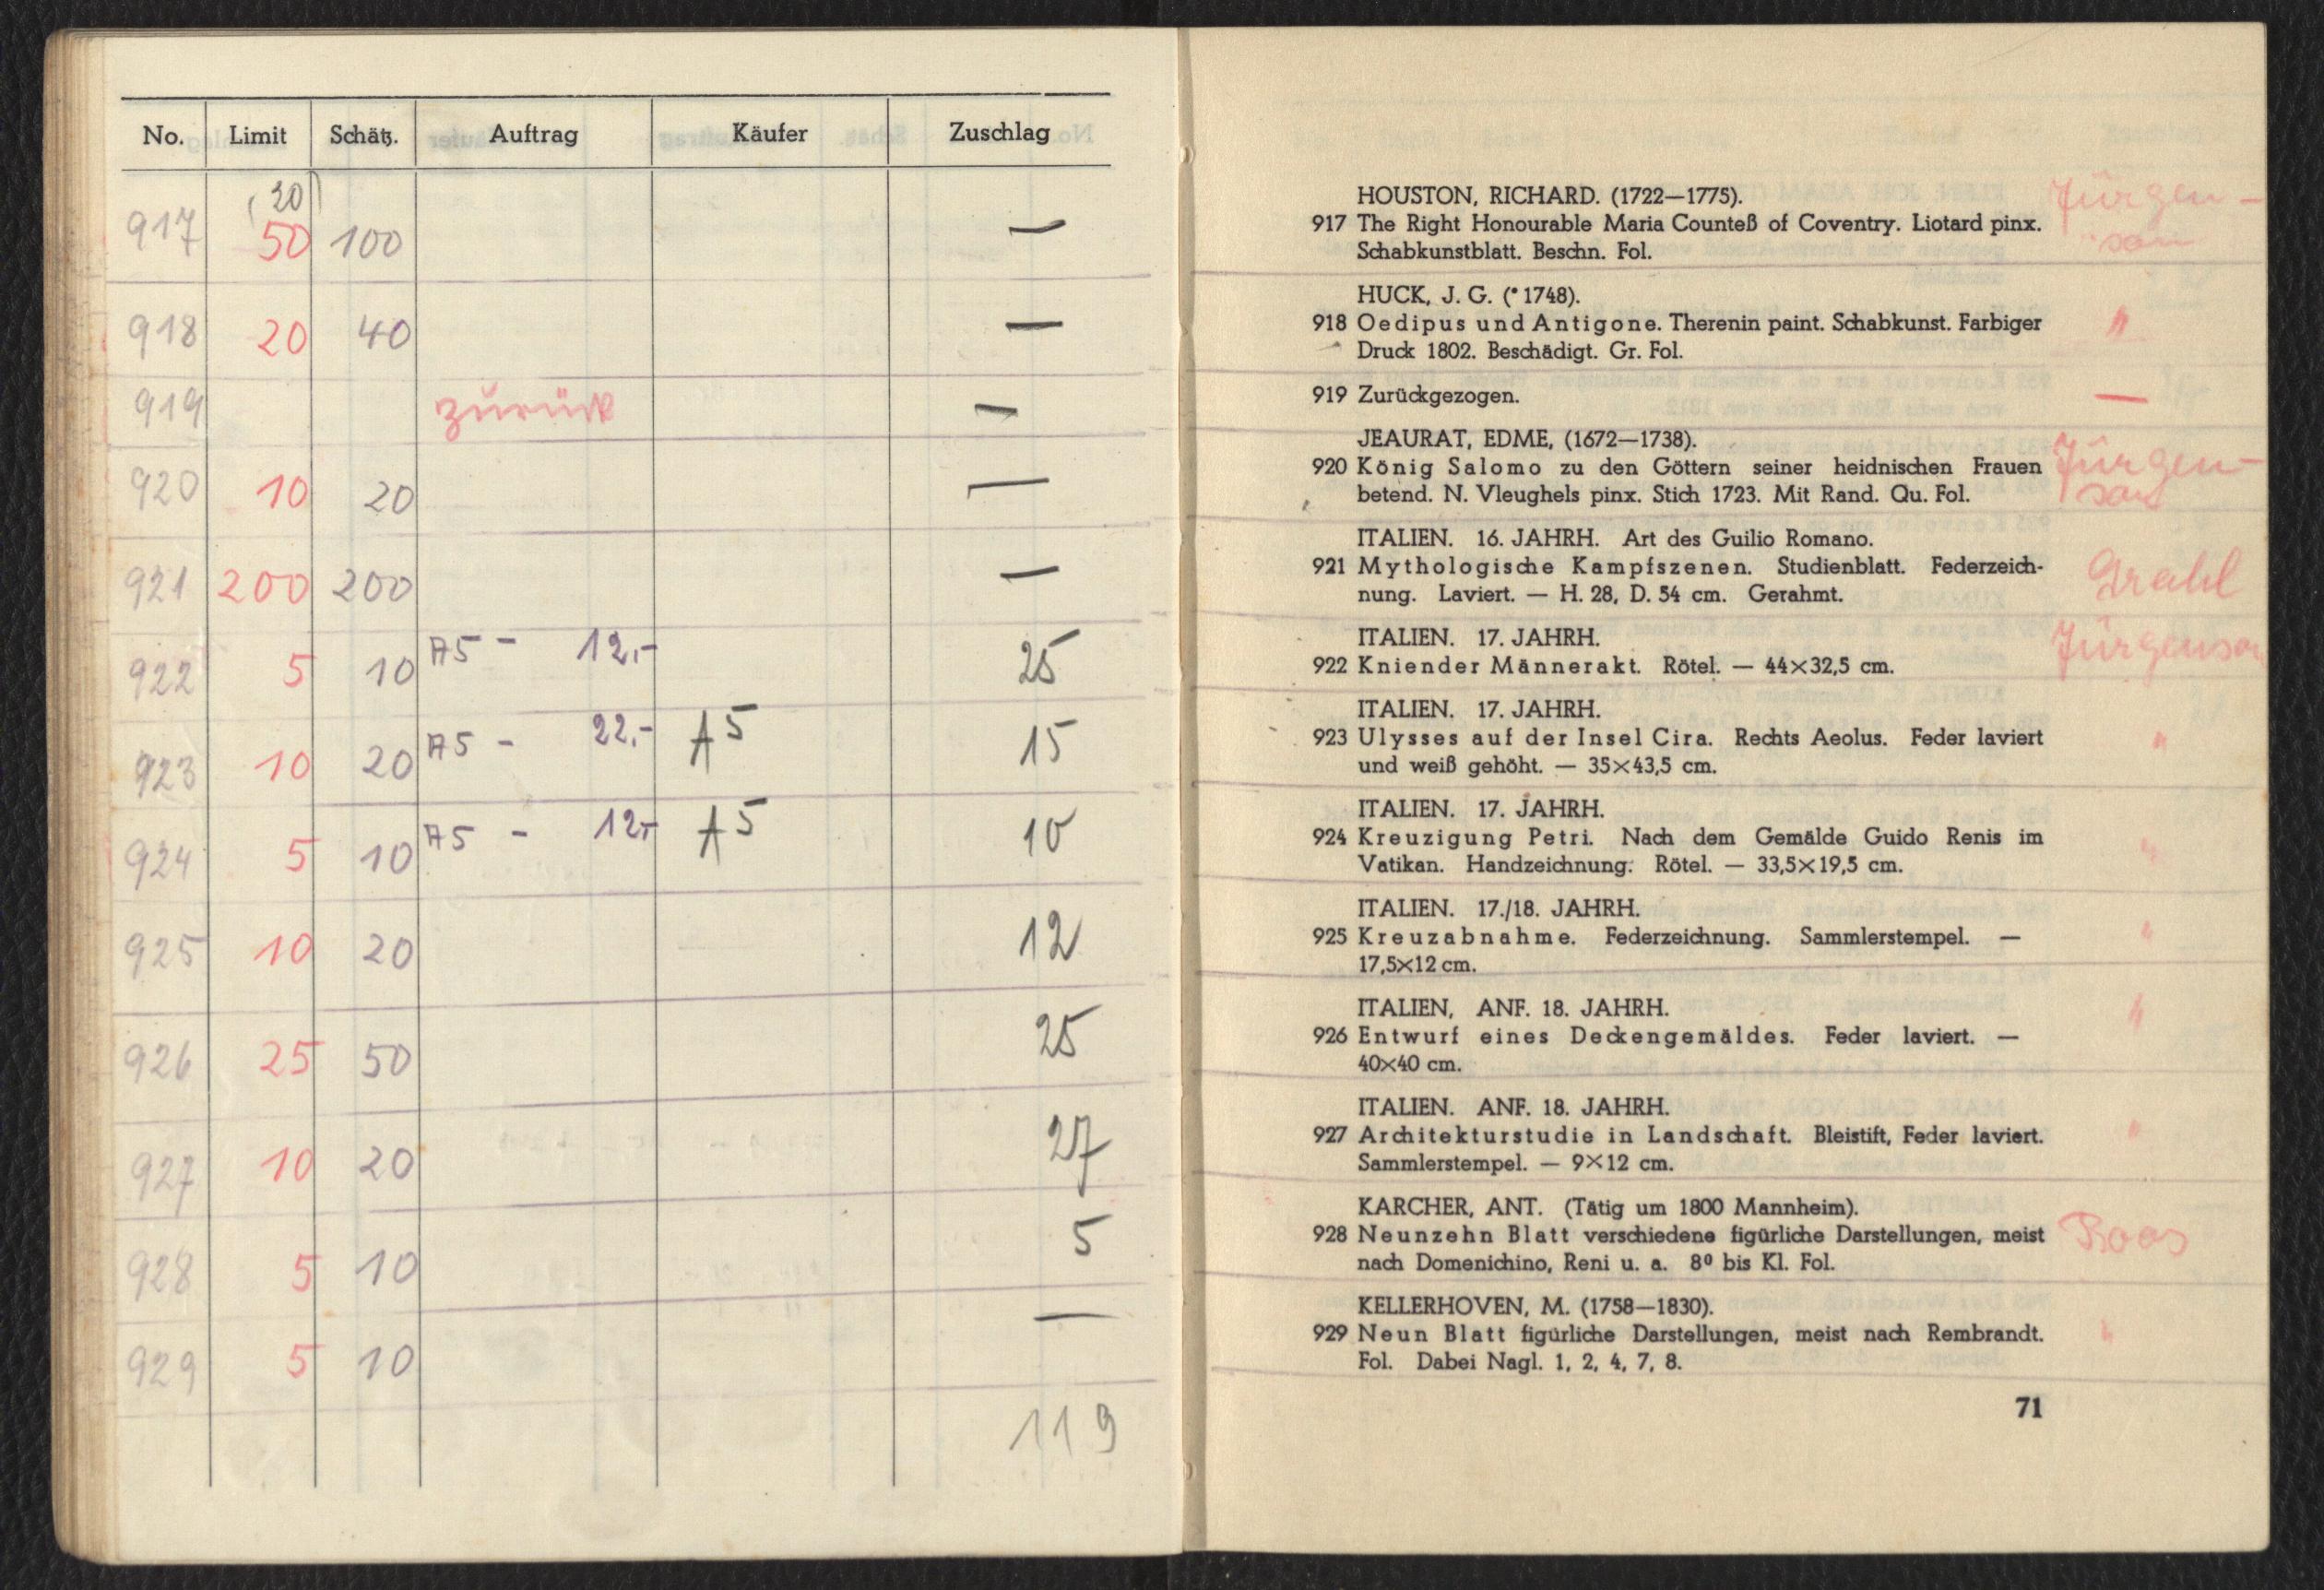 No. Limit Schätz. Auftrag Käufer Zuschlag
(20)
917 50 100 —
918 20 40 —
919 zurück —
920 10 20 —
921 200 200 —
922 5 10 A5 - 12,- 25
923 10 20 A5 - 22,- A5 15
924 5 10 A5 - 12,- A5 10
925 10 20 12
926 25 50 25
927 10 20 27
928 5 10 5
929 5 10 —
119
HOUSTON, RICHARD. (1722—1775). Jürgen-
917 The Right Honourable Maria Counteß of Coventry. Liotard pinx. son
Schabkunstblatt. Beschn. Fol.
HUCK, J. G. (*1748).
918 Oedipus und Antigone. Therenin paint. Schabkunst. Farbiger "
Druck 1802. Beschädigt. Gr. Fol.
919 Zurückgezogen. —
JEAURAT, EDME, (1672—1738).
920 König Salomo zu den Göttern seiner heidnischen Frauen Jürgen-
betend. N. Vleughels pinx. Stich 1723. Mit Rand. Qu. Fol. son
ITALIEN. 16. JAHRH. Art des Guilio Romano.
921 Mythologische Kampfszenen. Studienblatt. Federzeich- Grahl
nung. Laviert. — H. 28, D. 54 cm. Gerahmt.
ITALIEN. 17. JAHRH. Jürgenson
922 Kniender Männerakt. Rötel. — 44×32,5 cm.
ITALIEN. 17. JAHRH.
923 Ulysses auf der Insel Cira. Rechts Aeolus. Feder laviert "
und weiß gehöht. — 35×43,5 cm.
ITALIEN. 17. JAHRH.
924 Kreuzigung Petri. Nach dem Gemälde Guido Renis im "
Vatikan. Handzeichnung. Rötel. — 33,5×19,5 cm.
ITALIEN. 17./18. JAHRH.
925 Kreuzabnahme. Federzeichnung. Sammlerstempel. — "
17,5×12 cm.
ITALIEN, ANF. 18. JAHRH. "
926 Entwurf eines Deckengemäldes. Feder laviert. —
40×40 cm.
ITALIEN. ANF. 18. JAHRH.
927 Architekturstudie in Landschaft. Bleistift, Feder laviert. "
Sammlerstempel. — 9×12 cm.
KARCHER, ANT. (Tätig um 1800 Mannheim).
928 Neunzehn Blatt verschiedene figürliche Darstellungen, meist Roos
nach Domenichino, Reni u. a. 8⁰ bis Kl. Fol.
KELLERHOVEN, M. (1758—1830).
929 Neun Blatt figürliche Darstellungen, meist nach Rembrandt. "
Fol. Dabei Nagl. 1, 2, 4, 7, 8.
71